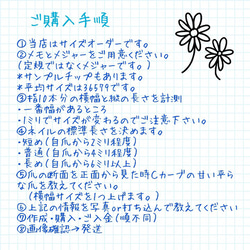 ご購入手順
①当店はサイズオーダーです。
②メモとメジャーをご用意ください。
(定規ではなくメジャーです。)
*サンプルチップもあります。
*平均サイズは36579です。
③指10本分の横幅と縦の長さを計測
・一番幅があるところ
・1ミリでサイズが変わるのでご注意下さい。
④ネイルの標準長さを決めます。
・短め(自爪から2ミリ程度)
・普通(自爪から4ミリ程度)
・長め(自爪から6ミリ以上)
⑤爪の断面を正面から見た時にカーブの甘い平らな
な爪を教えてください。
(横幅サイズを1つ上げます。)
⑥上記の情報を写真or打ち込んで教えてください
⑦作成・購入・ご入金(順不同)
⑧画像確認→発送